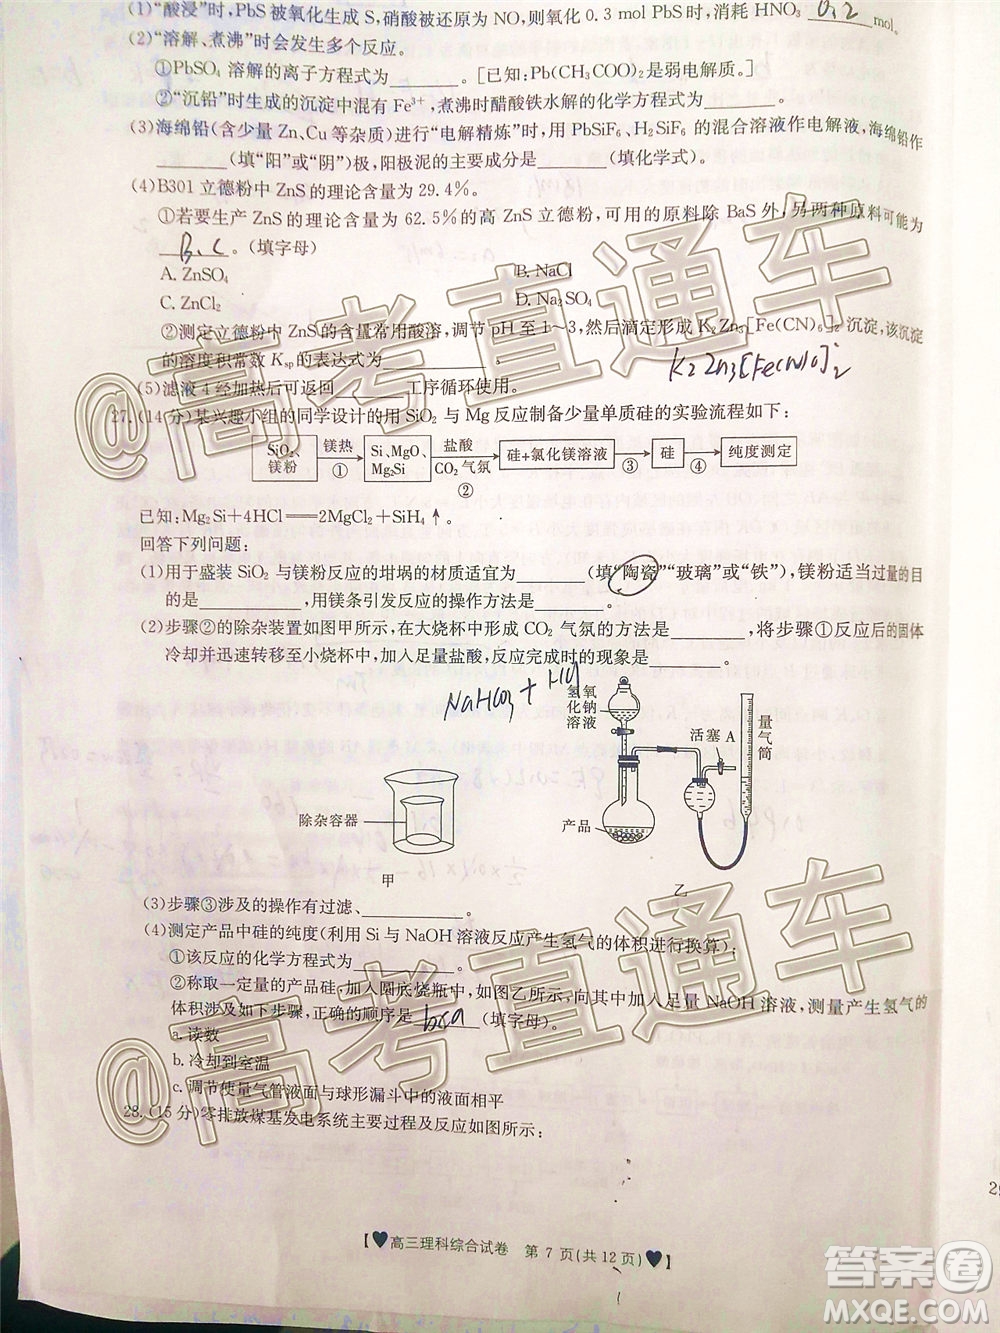 (1)“酸浸”时，PbS被氧化生成S，硝酸被还原为NO，则氧化0.3 mol PbS时，消耗HNO₃ 0.2 mol。
(2)“溶解、煮沸”时会发生多个反应。
①PbSO₄溶解的离子方程式为________。[已知：Pb(CH₃COO)₂是弱电解质。]
②“沉铅”时生成的沉淀中混有Fe³⁺，煮沸时醋酸铁水解的化学方程式为________。
(3)海绵铅(含少量Zn、Cu等杂质)进行“电解精炼”时，用PbSiF₆、H₂SiF₆的混合溶液作电解液，海绵铅作
________(填“阳”或“阴”)极，阳极泥的主要成分是________(填化学式)。
(4)B301立德粉中ZnS的理论含量为29.4%。
①若要生产ZnS的理论含量为62.5%的高ZnS立德粉，可使用的原料除BaS外，另两种原料可能为
B、C。(填字母)
A. ZnSO₄ B. NaCl
C. ZnCl₂ D. Na₂SO₄
②测定立德粉中ZnS的含量常用酸溶，调节pH至1～3，然后滴定形成K₂Zn₃[Fe(CN)₆]₂沉淀，该沉淀
的溶度积常数Ksp的表达式为________。
K₂Zn₃[Fe(CN)₆]₂
(5)滤液4经加热后可返回________工序循环使用。
27.(14分)某兴趣小组的同学设计的用SiO₂与Mg反应制备少量单质硅的实验流程如下：
SiO₂、镁粉 镁热 ① Si、MgO、Mg₂Si 盐酸 CO₂气氛 ② 硅+氯化镁溶液 ③ 硅 ④ 纯度测定
已知：Mg₂Si+4HCl══2MgCl₂+SiH₄↑。
回答下列问题：
(1)用于盛装SiO₂与镁粉反应的坩埚的材质适宜为________(填“陶瓷”“玻璃”或“铁”)，镁粉适当过量的目
的是________，用镁条引发反应的操作方法是________。
(2)步骤②的除杂装置如图甲所示，在大烧杯中形成CO₂气氛的方法是________，将步骤①反应后的固体
冷却并迅速转移至小烧杯中，加入足量盐酸，反应完成时的现象是________。
NaHCO₃ + HCl
氢氧化钠溶液
活塞A
量气筒
除杂容器
产品
甲
乙
(3)步骤③涉及的操作有过滤、________。
(4)测定产品中硅的纯度(利用Si与NaOH溶液反应产生氢气的体积进行换算)：
①该反应的化学方程式为________。
②称取一定量的产品硅，加入圆底烧瓶中，如图乙所示，向其中加入足量NaOH溶液，测量产生氢气的
体积涉及如下步骤，正确的顺序是 bca (填字母)。
a. 读数
b. 冷却到室温
c. 调节使量气管液面与球形漏斗中的液面相平
28.(15分)零排放煤基发电系统主要过程及反应如图所示：
【♥高三理科综合试卷 第7页(共12页)♥】
@高考直通车
@高考直通车
答案圈
MXQE.COM